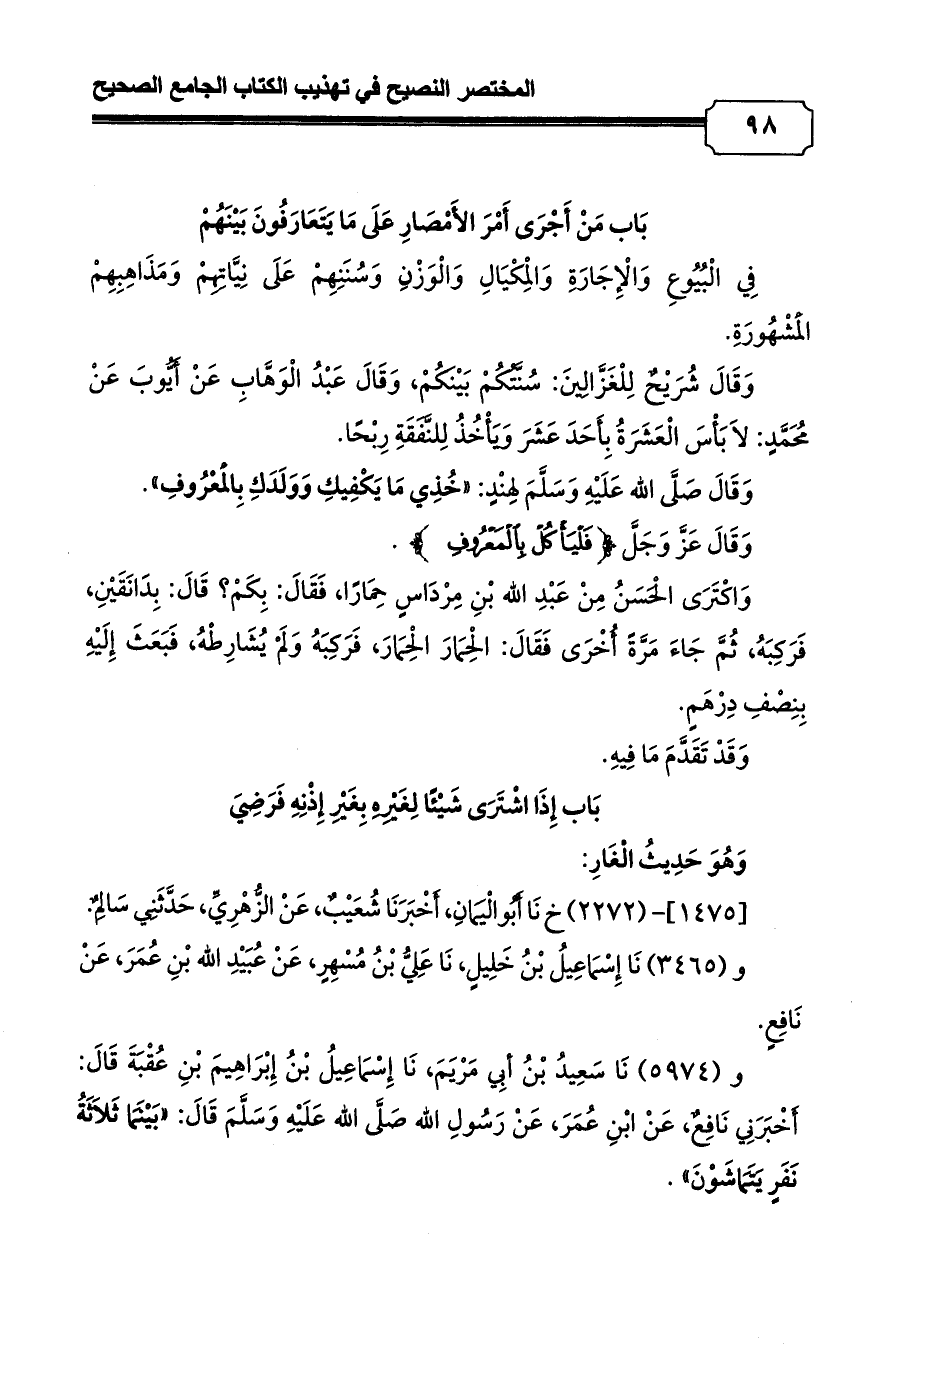 المختصر النصيح في تهذيب الكتاب الجامع الصحيح
٩٨
بَاب مَنْ أَجْرَى أَمْرَ الأَمْصَارِ عَلَى مَا يَتَعَارَفُونَ بَيْنَهُمْ
فِي الْبُيُوعِ وَالْإِجَارَةِ وَالْمِكْيَالِ وَالْوَزْنِ وَسُنَنِهِمْ عَلَى نِيَّاتِهِمْ وَمَذَاهِبِهِمْ
الْمَشْهُورَةِ.
وَقَالَ شُرَيْحٌ لِلْغَزَّالِينَ: سُنَّتُكُمْ بَيْنَكُمْ، وَقَالَ عَبْدُ الْوَهَّابِ عَنْ أَيُّوبَ عَنْ
مُحَمَّدٍ: لاَ بَأْسَ الْعَشَرَةُ بِأَحَدَ عَشَرَ وَيَأْخُذُ لِلنَّفَقَةِ رِبْحًا.
وَقَالَ صَلَّى الله عَلَيْهِ وَسَلَّمَ لِهِنْدٍ: «خُذِي مَا يَكْفِيكِ وَوَلَدَكِ بِالْمَعْرُوفِ».
وَقَالَ عَزَّ وَجَلَّ ﴿فَلْيَأْكُلْ بِٱلْمَعْرُوفِ﴾ .
وَاكْتَرَى الْحَسَنُ مِنْ عَبْدِ الله بْنِ مِرْدَاسٍ حِمَارًا، فَقَالَ: بِكَمْ؟ قَالَ: بِدَانَقَيْنِ،
فَرَكِبَهُ، ثُمَّ جَاءَ مَرَّةً أُخْرَى فَقَالَ: الْحِمَارَ الْحِمَارَ، فَرَكِبَهُ وَلَمْ يُشَارِطْهُ، فَبَعَثَ إِلَيْهِ
بِنِصْفِ دِرْهَمٍ.
وَقَدْ تَقَدَّمَ مَا فِيهِ.
بَاب إِذَا اشْتَرَى شَيْئًا لِغَيْرِهِ بِغَيْرِ إِذْنِهِ فَرَضِيَ
وَهُوَ حَدِيثُ الْغَارِ:
[١٤٧٥]- (٢٢٧٢) خ نَا أَبُو الْيَمَانِ، أَخْبَرَنَا شُعَيْبٌ، عَنْ الزُّهْرِيِّ، حَدَّثَنِي سَالِمٌ.
و (٣٤٦٥) نَا إِسْمَاعِيلُ بْنُ خَلِيلٍ، نَا عَلِيُّ بْنُ مُسْهِرٍ، عَنْ عُبَيْدِ الله بْنِ عُمَرَ، عَنْ
نَافِعٍ.
و (٥٩٧٤) نَا سَعِيدُ بْنُ أبِي مَرْيَمَ، نَا إِسْمَاعِيلُ بْنُ إِبْرَاهِيمَ بْنِ عُقْبَةَ قَالَ:
أَخْبَرَنِي نَافِعٌ، عَنْ ابْنِ عُمَرَ، عَنْ رَسُولِ الله صَلَّى الله عَلَيْهِ وَسَلَّمَ قَالَ: «بَيْنَمَا ثَلاَثَةُ
نَفَرٍ يَتَمَاشَوْنَ» .